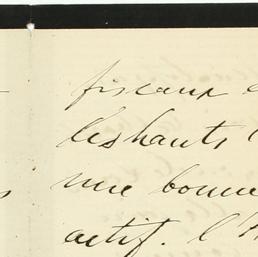 fiscaux
les hauts
une bonne
actif. l'